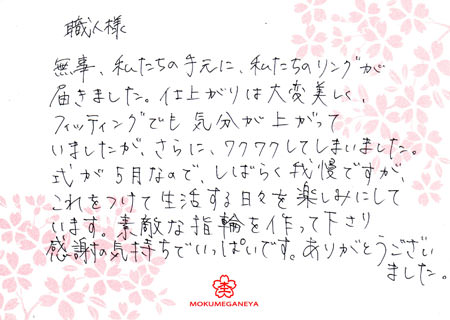 職人様
無事、私たちの手元に、私たちのリングが
届きました。仕上がりは大変美しく、
フィッティングでも気分が上がって
いましたが、さらに、ワクワクしてしまいました。
式が5月なので、しばらく我慢ですが、
これをつけて生活する日々を楽しみにして
います。素敵な指輪を作って下さり
感謝の気持ちでいっぱいです。ありがとうござい
ました。
MOKUMEGANEYA